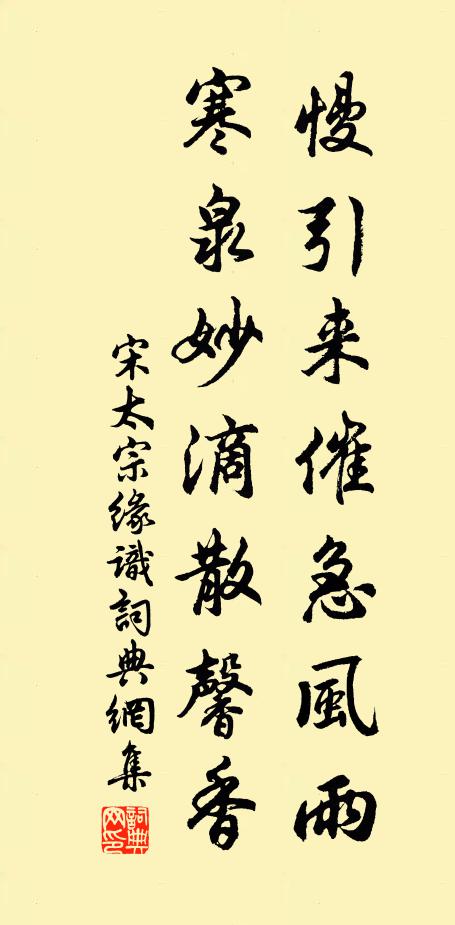 慢引来催急風雨
寒泉妙滴散馨香
宋太宗緣識詞典網集
詞典
网印